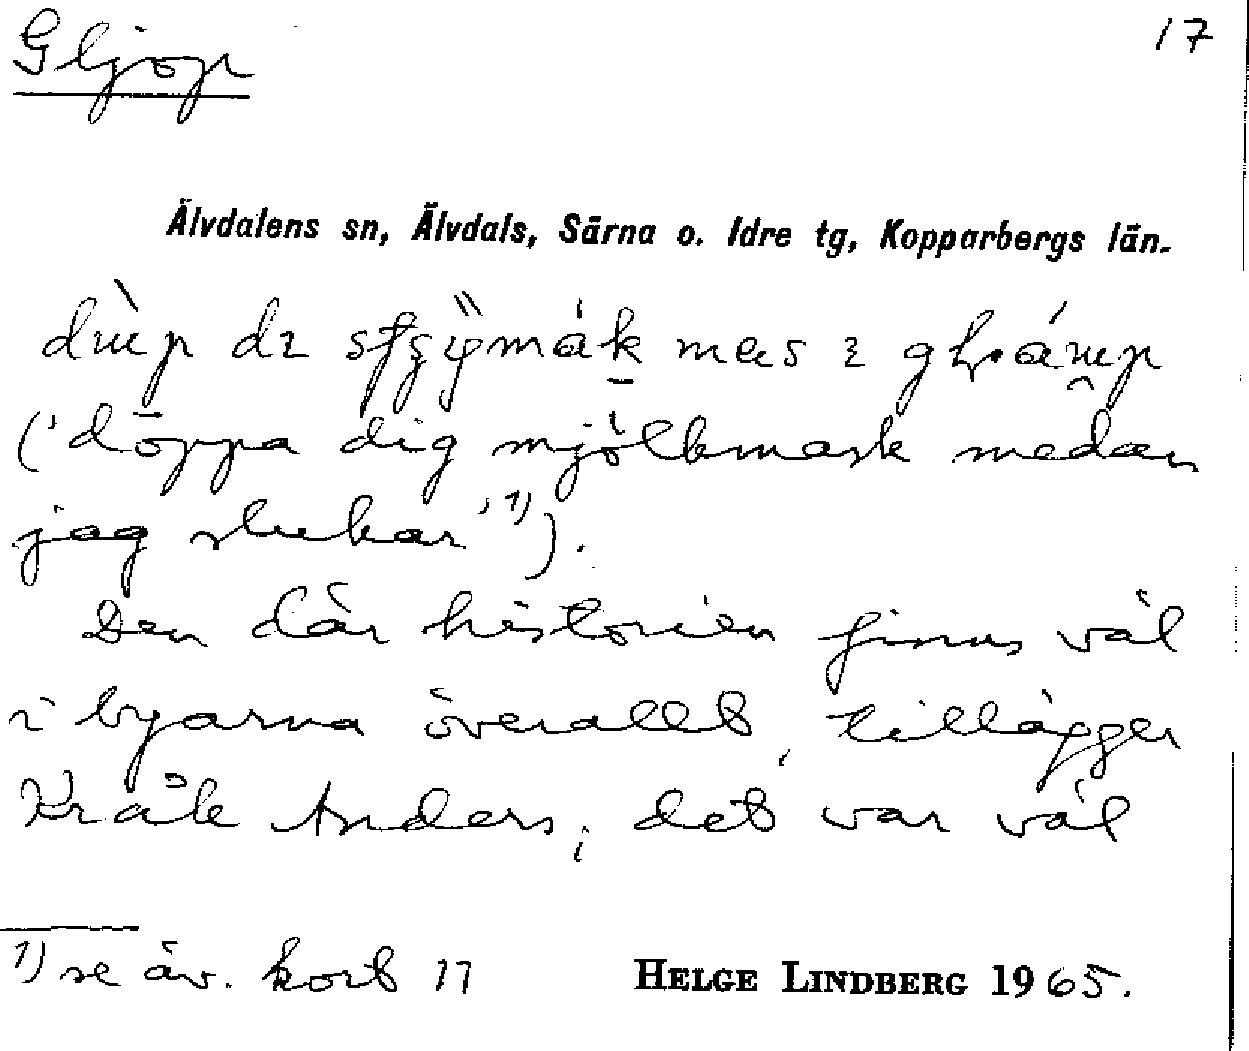 Gljöp
17
Älvdalens sn, Älvdals, Särna o. Idre tg, Kopparbergs län.
('döppa dig mjölkmask medan
jag slukar' 1)).
Den där historien finns väl
i byarna överallt, tillägger
Kråk Anders; det var väl
1) se äv. kort 11
HELGE LINDBERG 1965.